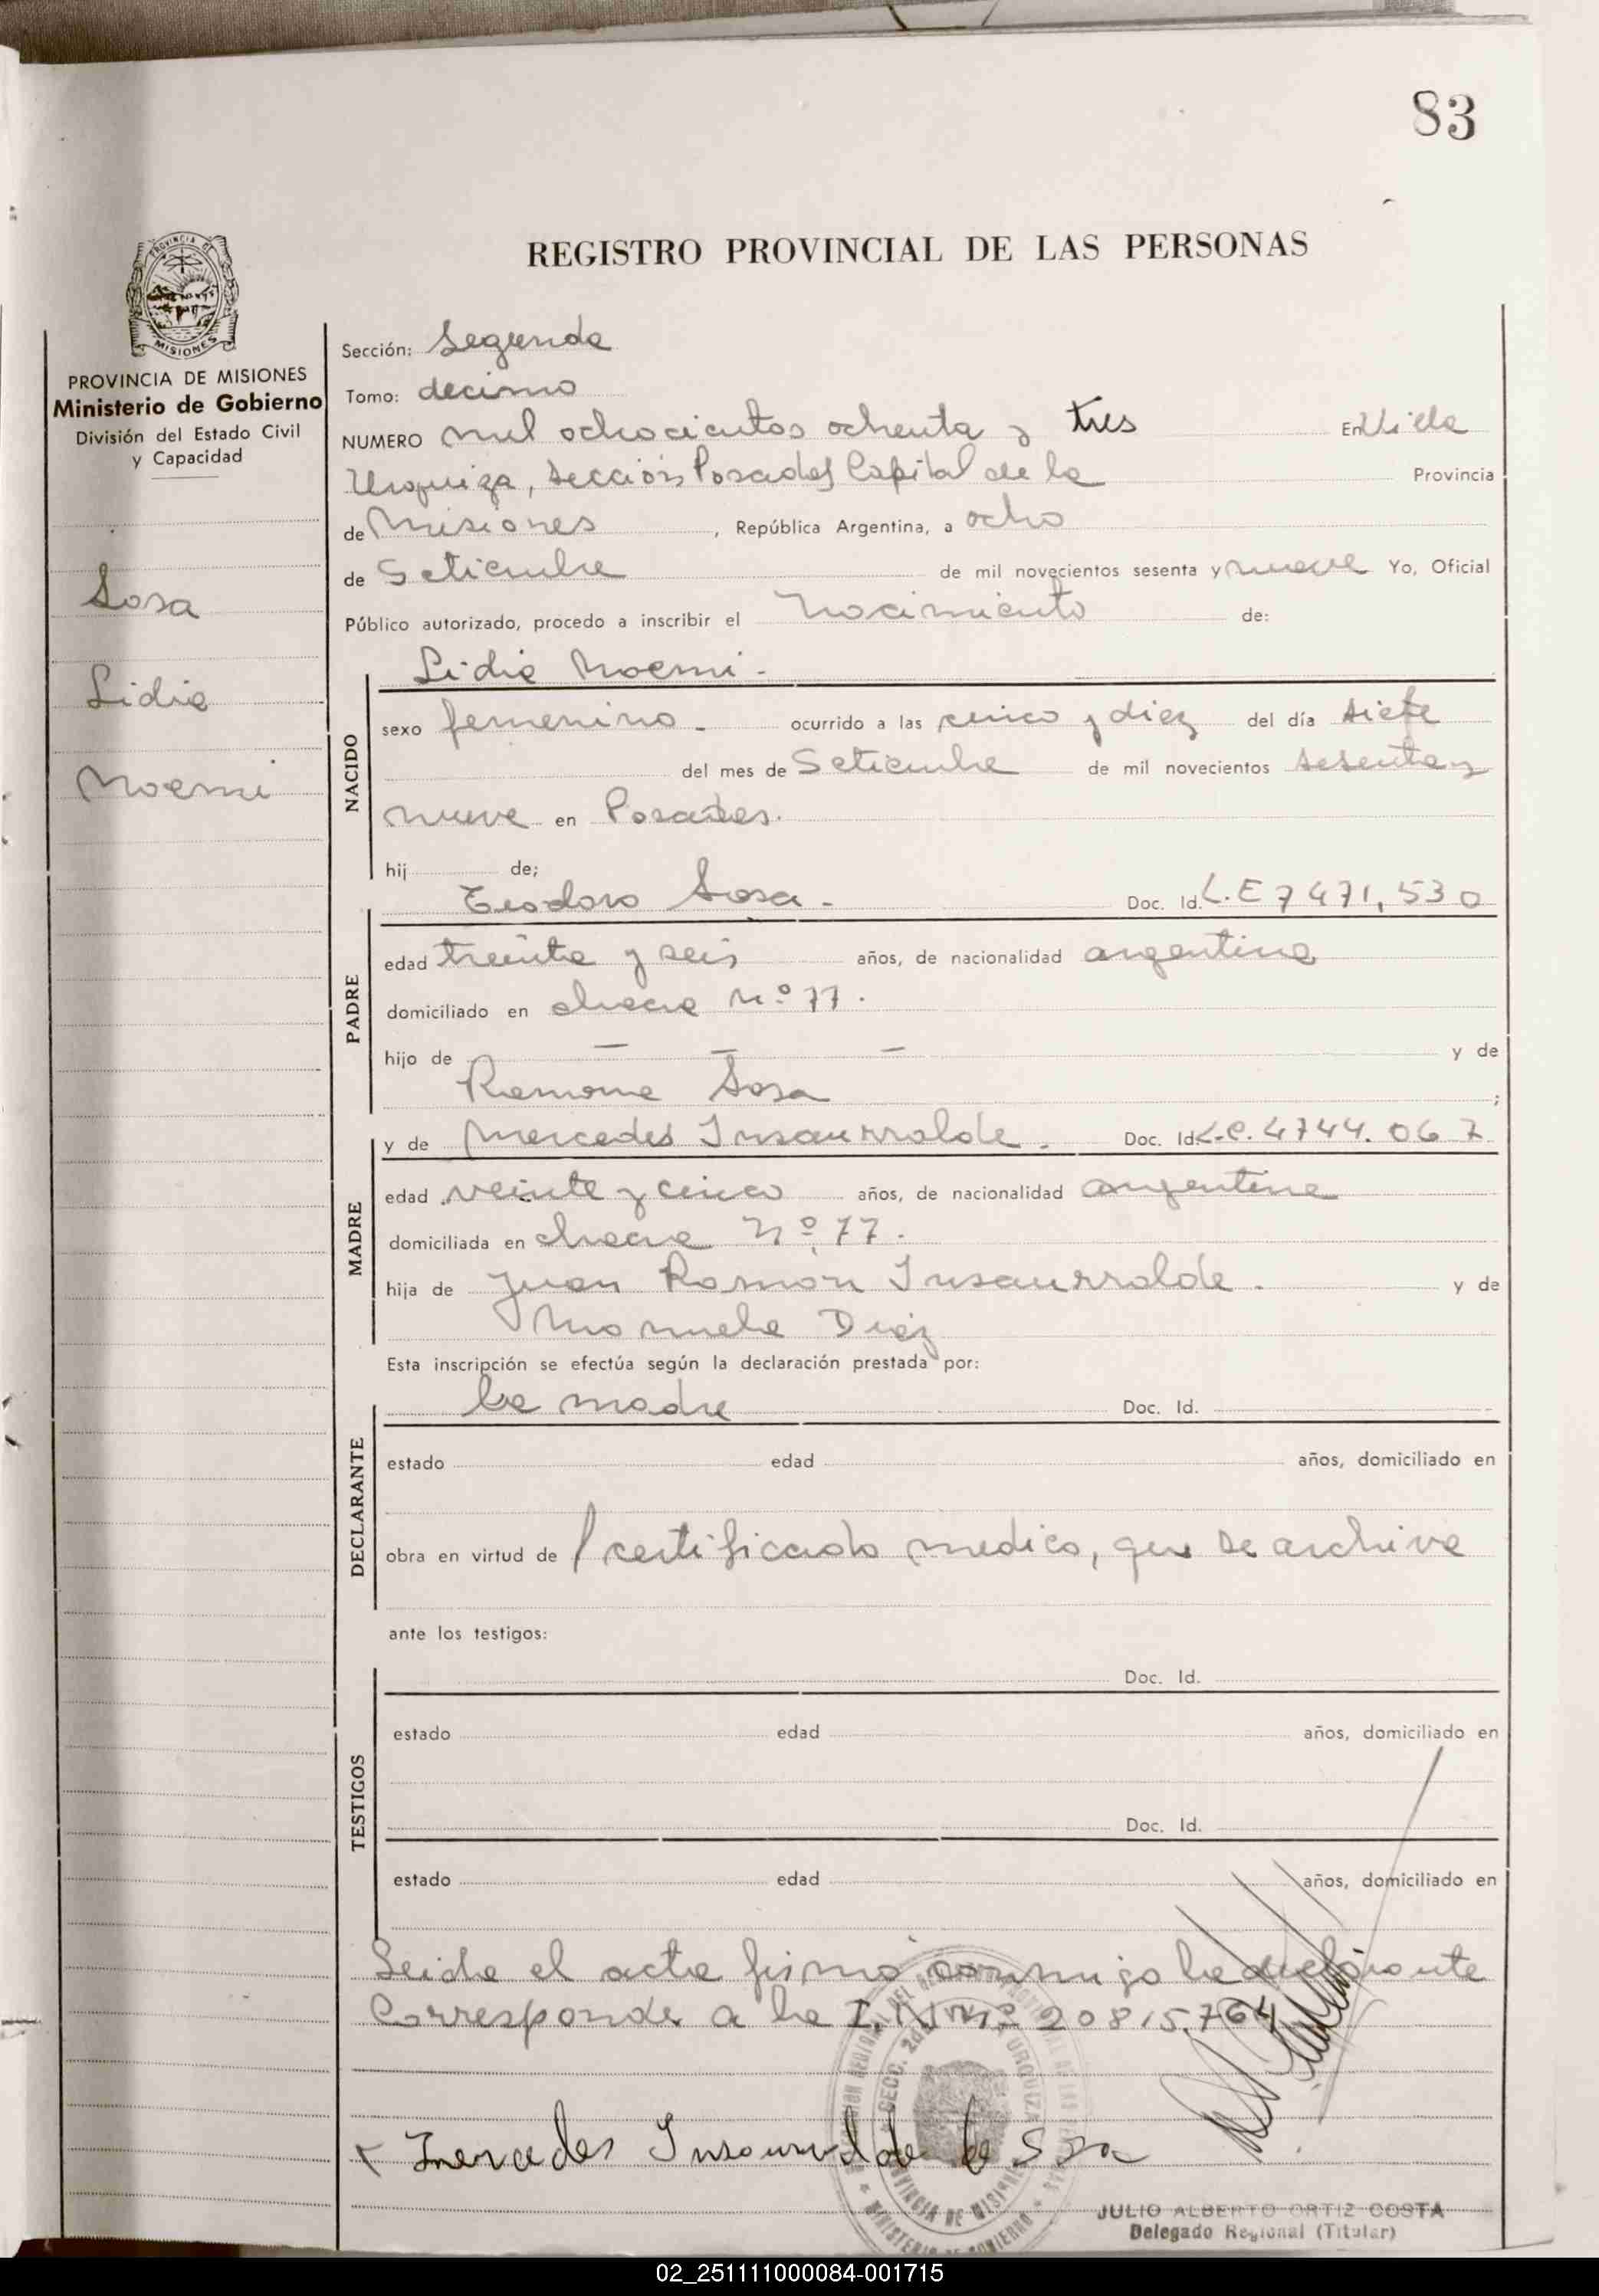 83
REGISTRO PROVINCIAL DE LAS PERSONAS
PROVINCIA DE MISIONES
Ministerio de Gobierno
División del Estado Civil
y Capacidad
Sosa
Lidia
Noemi
Sección: Segunda
Tomo: decimo
NUMERO mil ochocientos ochenta y tres En Villa
Urquiza, Sección Posadas Capital de la Provincia
de Misiones, República Argentina, a ocho
de Setiembre de mil novecientos sesenta y nueve Yo, Oficial
Público autorizado, procedo a inscribir el Nacimiento de:
Lidia Noemi.-
NACIDO
sexo femenino - ocurrido a las cinco y diez del día siete
del mes de Setiembre de mil novecientos sesenta y
nueve en Posadas.
hij de;
Teodoro Sosa.- Doc. Id. L.E 7471,530
PADRE
edad treinta y seis años, de nacionalidad argentina
domiciliado en chacra Nº 77.
hijo de — — — y de
Ramona Sosa ;
y de Mercedes Insaurralde. Doc. Id. L.C. 4744.067
MADRE
edad veinte y cinco años, de nacionalidad argentina
domiciliada en chacra Nº 77.
hija de Juan Ramon Insaurralde. y de
Manuela Diaz
Esta inscripción se efectúa según la declaración prestada por:
la madre Doc. Id.
DECLARANTE
estado edad años, domiciliado en
obra en virtud de / certificado medico, que se archiva
ante los testigos:
Doc. Id.
TESTIGOS
estado edad años, domiciliado en
Doc. Id.
estado edad años, domiciliado en
Leida el acta firmó conmigo la declarante
Corresponde a la I. Nº 20815,764
Mercedes Insaurralde de Sosa
SECC. 2da URQUIZA
PROVINCIA DE MISIONES
MINISTERIO DE GOBIERNO
JULIO ALBERTO ORTIZ COSTA
Delegado Regional (Titular)
02_251111000084-001715